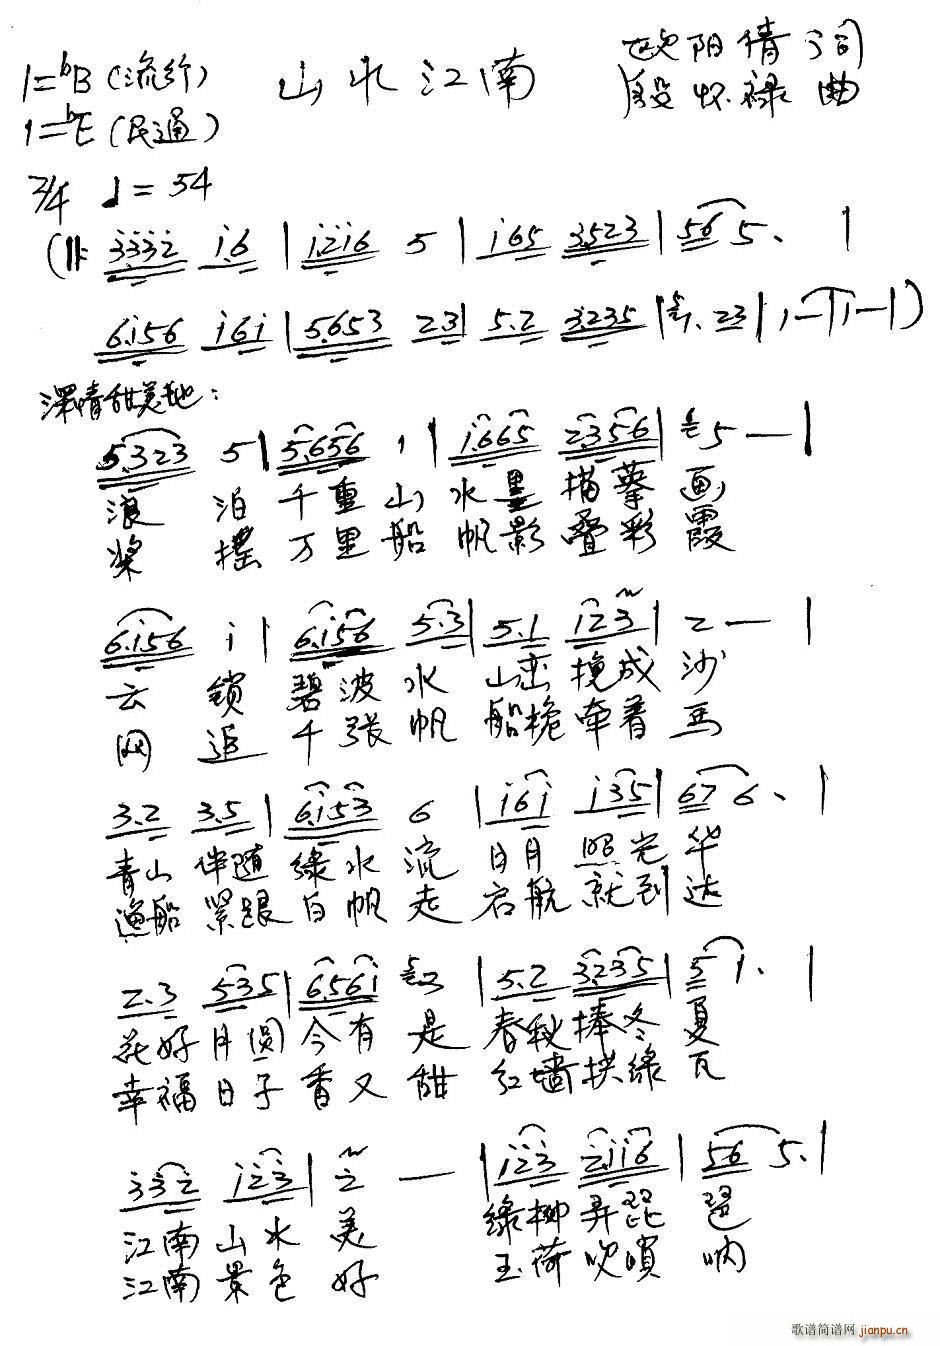 1=bB (流行) 山水江南 欧阳倩词
1=bE (民通) 段怀禄 曲
3/4 ♩=54
(‖: 3332 i.6 | i2i6 5 | i65 3523 | 56 5. |
6.i56 i6i | 5.653 23 | 5.2 3.235 | 1. 23 | 1 — | 1 — | )
深情甜美地:
5.323 5 | 5.656 1 | i.665 2356 | 5 — |
浪 泊 千重山 水墨 描摹 画
桨 摇 万里船 帆影 叠彩 霞
6.i56 i | 6.i56 5.3 | 5.1 i23 | 2 — |
云 锁 碧波水 山峦 挽成 沙
网 追 千张帆 船桅 牵着 马
3.2 3.5 | 6.i53 6 | i6i i35 | 67 6. |
青山 伴随 绿水 流 日月 照光 华
渔船 紧跟 白帆 走 启航 就到 达
2.3 535 | 6.56i 3 | 5.2 3.235 | 5 1. |
花好 月圆 今有 是 春秋 捧冬 夏
幸福 日子 香又 甜 红墙 拱绿 瓦
332 i23 | 2 — | i23 2.ii6 | 56 5. |
江南 山水 美 绿柳 弄琵 琶
江南 景色 好 玉荷 吹唢 呐
歌谱简谱网 jianpu.cn